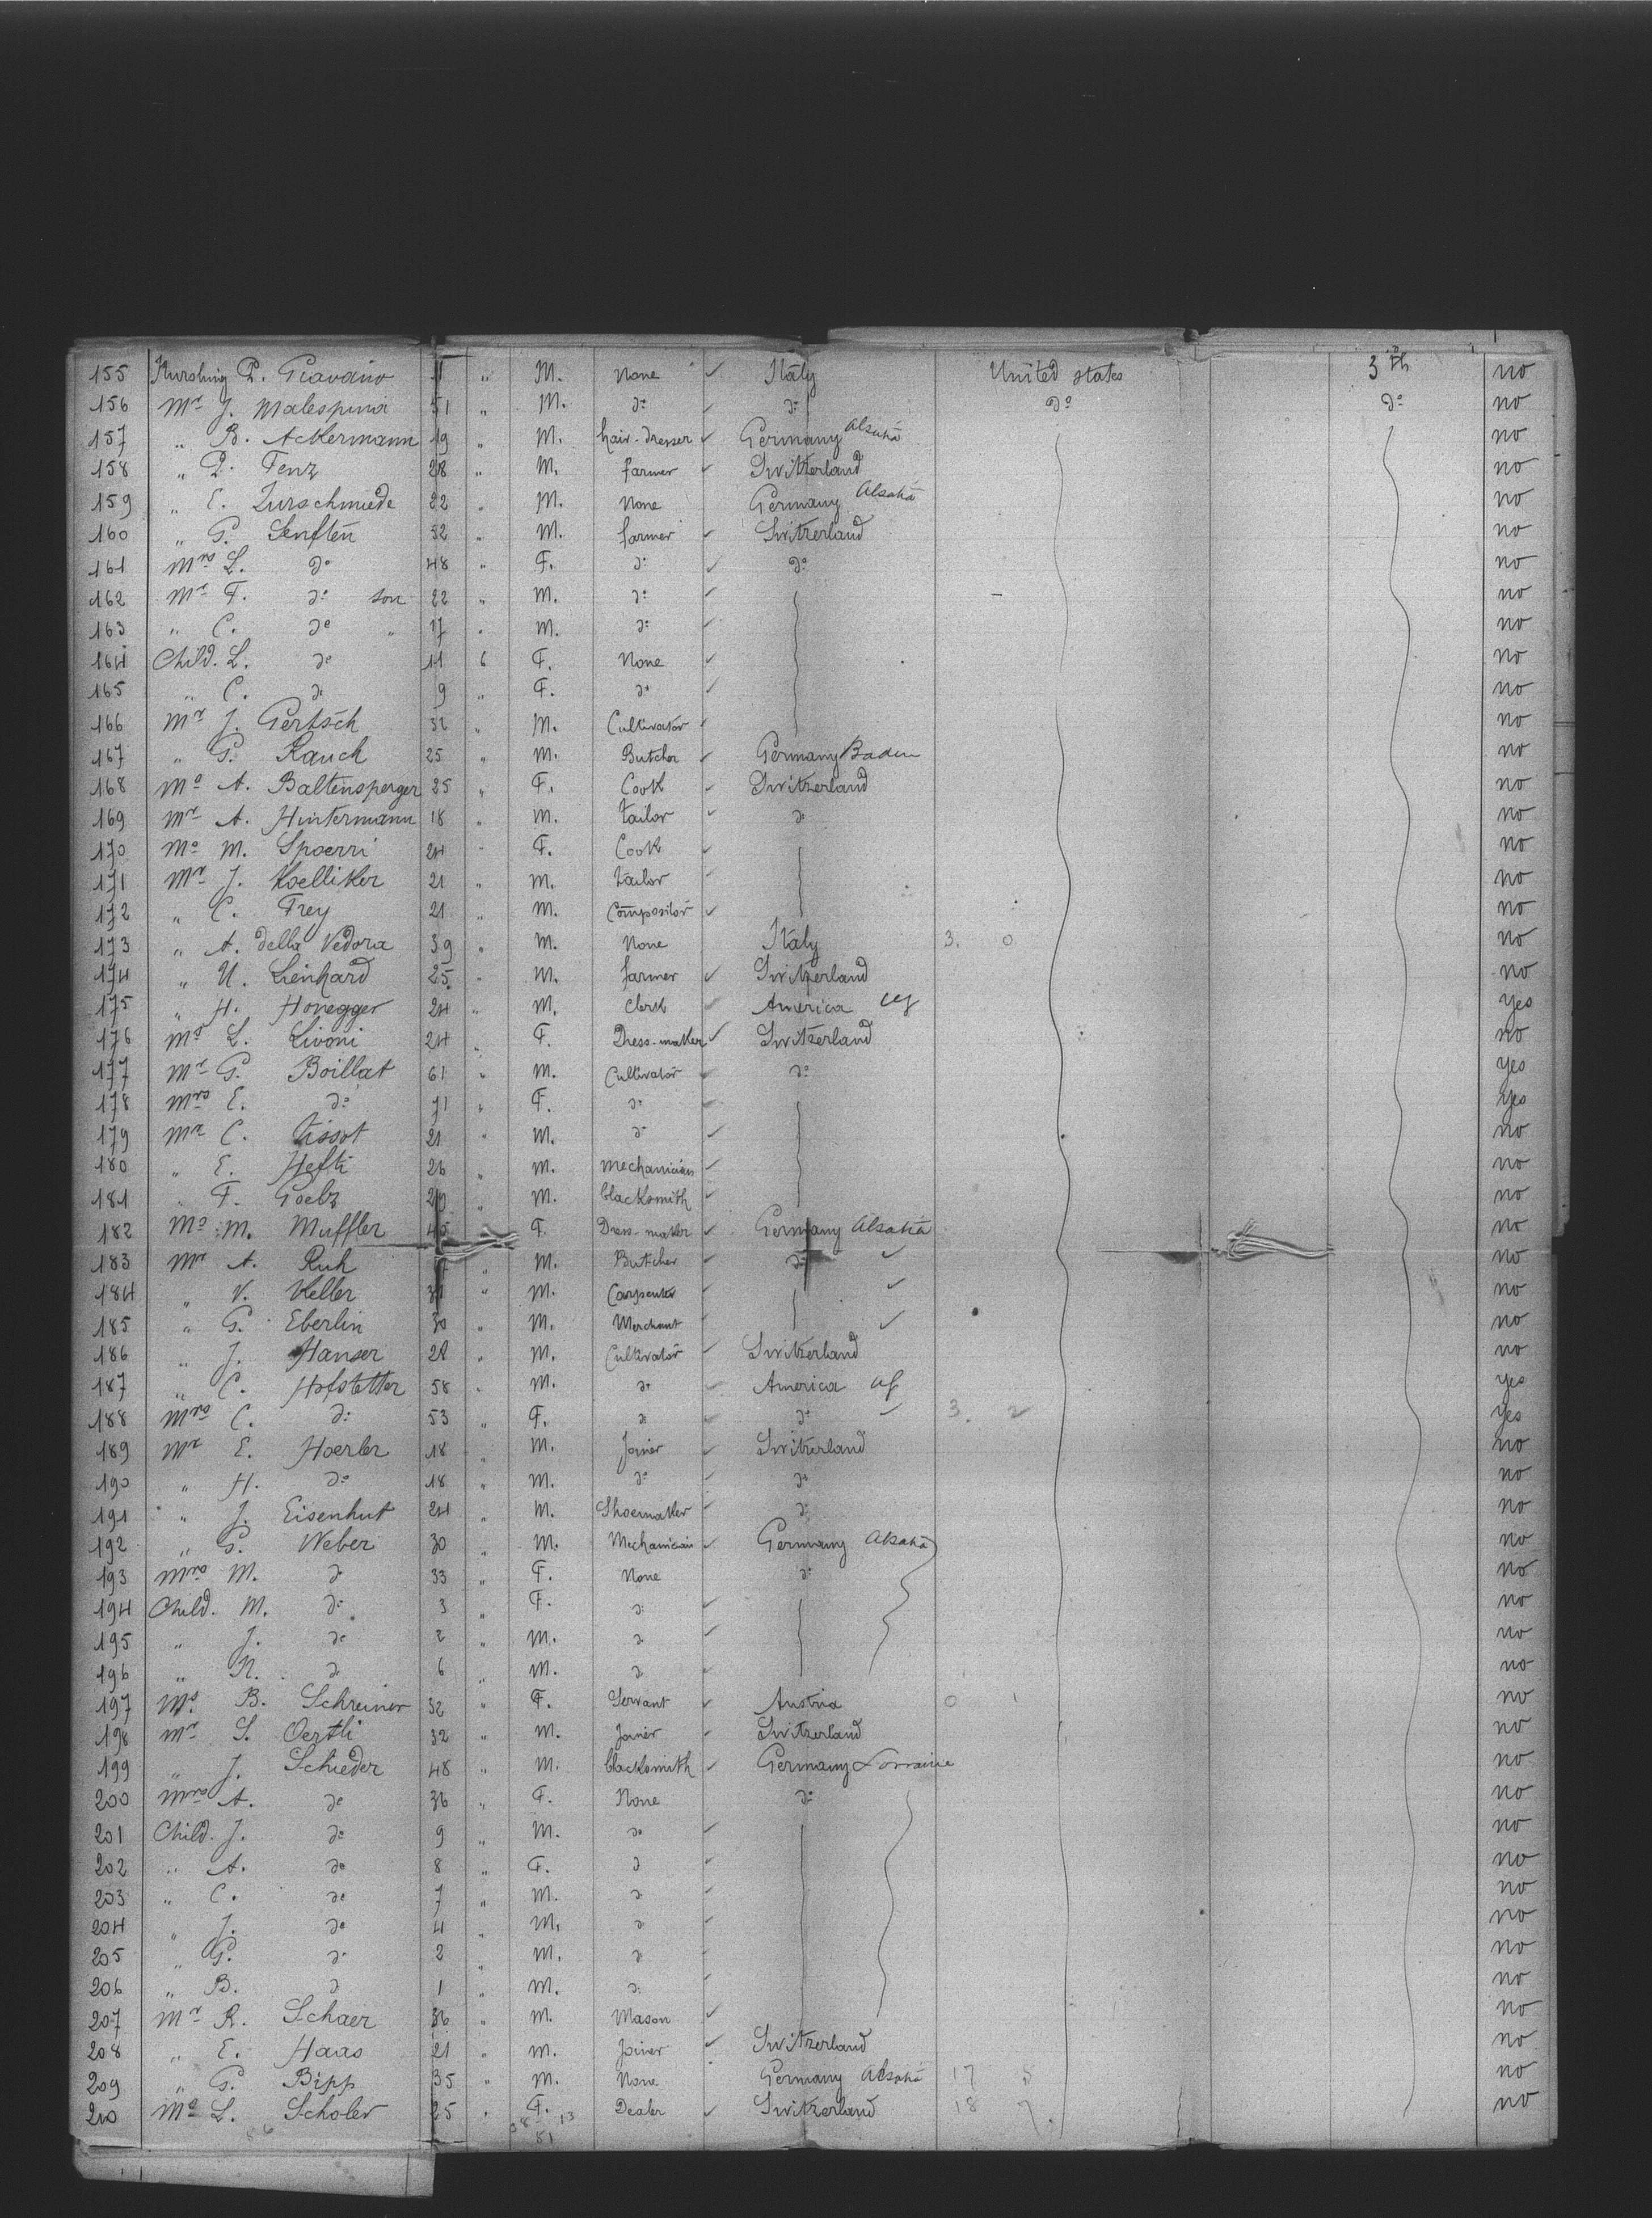 155 Nursling P. Giavano 11 " M. None ✓ Italy United states 3th no
156 Mr J. Malespina 51 " M. do ✓ do do do no
157 " B. Ackermann 19 " M. hair-dresser ✓ Germany Alsatia no
158 " P. Fenz 28 " M. farmer ✓ Switzerland no
159 " E. Zurschmiede 22 " M. None Germany Alsatia no
160 " G. Senften 52 " M. farmer ✓ Switzerland no
161 Mrs L. do 48 " F. do ✓ do no
162 Mr F. do son 22 " M. do ✓ no
163 " C. do " 17 " M. do ✓ no
164 Child. L. do 11 6 F. None ✓ no
165 " C. do 9 " F. do ✓ no
166 Mr J. Gertsch 32 " M. Cultivator ✓ no
167 " G. Rauch 25 " M. Butcher ✓ Germany Baden no
168 Ms A. Baltensperger 25 " F. Cook ✓ Switzerland no
169 Mr A. Hintermann 18 " M. tailor ✓ do no
170 Ms M. Spoerri 24 " F. Cook ✓ no
171 Mr J. Koelliker 21 " M. tailor ✓ no
172 " C. Frey 21 " M. Compositor ✓ no
173 " A. della Vedora 39 " M. None Italy 3. 0 no
174 " U. Lienhard 25 " M. farmer ✓ Switzerland no
175 " H. Honegger 24 " M. Clerk ✓ America yes
176 Ms L. Livoni 24 " F. Dress-maker ✓ Switzerland no
177 Mr G. Boillat 61 " M. Cultivator ✓ do yes
178 Mrs E. do 71 " F. do ✓ yes
179 Mr C. Tissot 21 " M. do ✓ no
180 " E. Hefti 26 " M. mechanician ✓ no
181 " F. Goelz 29 " M. blacksmith ✓ no
182 Ms M. Muffler 45 F. Dress-maker ✓ Germany Alsatia no
183 Mr A. Ruh " M. Butcher ✓ do ✓ no
184 " V. Keller " M. Carpenter ✓ ✓ no
185 " G. Eberlin 30 " M. Merchant ✓ ✓ no
186 " J. Hanser 28 " M. Cultivator ✓ Switzerland no
187 " C. Hofstetter 58 " M. do ✓ America yes
188 Mrs C. do 53 " F. do ✓ do ✓ 3. 2 yes
189 Mr E. Hoerler 18 " M. Joiner ✓ Switzerland no
190 " H. do 18 " M. do ✓ do no
191 " J. Eisenhut 24 " M. Shoemaker ✓ do no
192 " G. Weber 30 " M. Mechanician ✓ Germany Alsatia no
193 Mrs M. do 33 " F. None do no
194 Child. M. do 3 " F. do ✓ no
195 " J. do 2 " M. do ✓ no
196 " R. do 6 " M. do ✓ no
197 Ms B. Schreiner 32 " F. Servant ✓ Austria 0 1 no
198 Mr S. Oertli 32 " M. Joiner ✓ Switzerland no
199 " J. Schieder 48 " M. blacksmith ✓ Germany Lorraine no
200 Mrs A. do 36 " F. None do no
201 Child. J. do 9 " M. do ✓ no
202 " A. do 8 " F. do ✓ no
203 " C. do 7 " M. do ✓ no
204 " J. do 4 " M. do ✓ no
205 " G. do 2 " M. do no
206 " B. do 1 " M. do ✓ no
207 Mr R. Schaer 36 " M. Mason ✓ no
208 " E. Haas 21 " M. Joiner ✓ Switzerland no
209 " G. Bipp 35 " M. None Germany Alsatia 17 5 no
210 Ms L. Scholer 25 " F. Dealer ✓ Switzerland 18 7. no